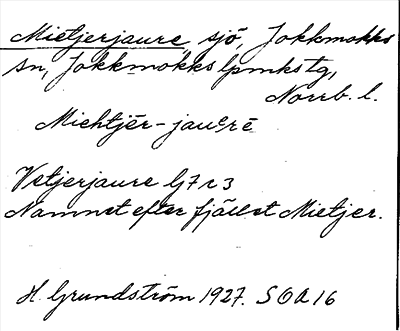 Mietjerjaure, sjö, Jokkmokks
sn, Jokkmokks lpmkstg,
Norrb. l.
Miehtjēr-jaure
Vetjerjaure lj7r3
Namnet efter fjället Mietjer.
H. Grundström 1927. SOA 16